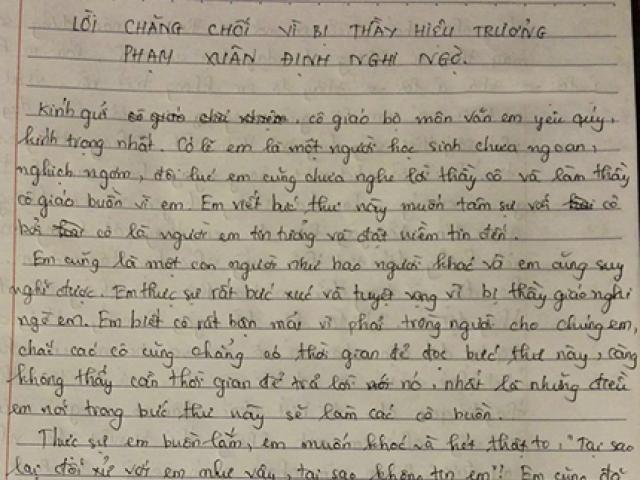 LỜI CHĂNG CHỐI VÌ BỊ THẦY HIỆU TRƯỞNG
PHẠM XUÂN ĐỊNH NGHI NGỜ.
Kính gửi cô giáo chủ nhiệm, cô giáo bộ môn văn em yêu quý,
kính trọng nhất. Có lẽ em là một người học sinh chưa ngoan,
nghịch ngợm, đôi lúc em cũng chưa nghe lời thầy cô và làm thầy
cô giáo buồn vì em. Em viết bức thư này muốn tâm sự với cô
bởi cô là người em tin tưởng và đặt niềm tin đến.
Em cũng là một con người như bao người khác và em cũng suy
nghĩ được. Em thực sự rất bức xúc và tuyệt vọng vì bị thầy giáo nghi
ngờ em. Em biết cô rất bận mải vì phải trồng người cho chúng em,
chắc các cô cũng chẳng có thời gian để đọc bức thư này, càng
không thấy cần thời gian để trả lời nó, nhất là những điều
em nói trong bức thư này sẽ làm các cô buồn.
Thực sự em buồn lắm, em muốn khóc và hét thật to, "Tại sao
lại đối xử với em như vậy, tại sao không tin em"! Em cũng đã